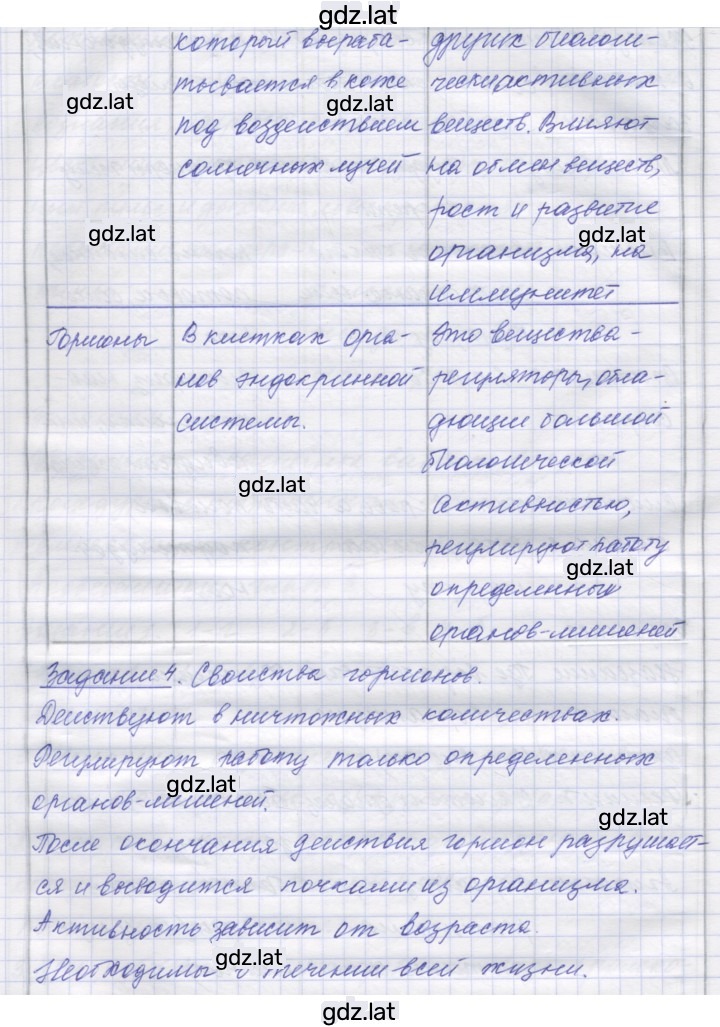 gdz.lat
который выраба-
тывается в коже
под воздействием
солнечных лучей
других биологи-
ческиактивных
веществ. Влияют
на обмен веществ,
рост и развитие
организма, на
иммунитет
gdz.lat
gdz.lat
gdz.lat
gdz.lat
Гормоны
В клетках орга-
нов эндокринной
системы.
Это вещества-
регуляторы, обла-
дающие большой
биологической
активностью,
регулируют работу
определенных
органов-мишеней
gdz.lat
gdz.lat
Задание 4. Свойства гормонов.
Действуют в ничтожных количествах.
Регулируют работу только определенных
gdz.lat
органов-мишеней.
gdz.lat
После окончания действия гормон разрушает-
ся и выводится почками из организма.
Активность зависит от возраста.
gdz.lat
Необходимы в течении всей жизни.
gdz.lat